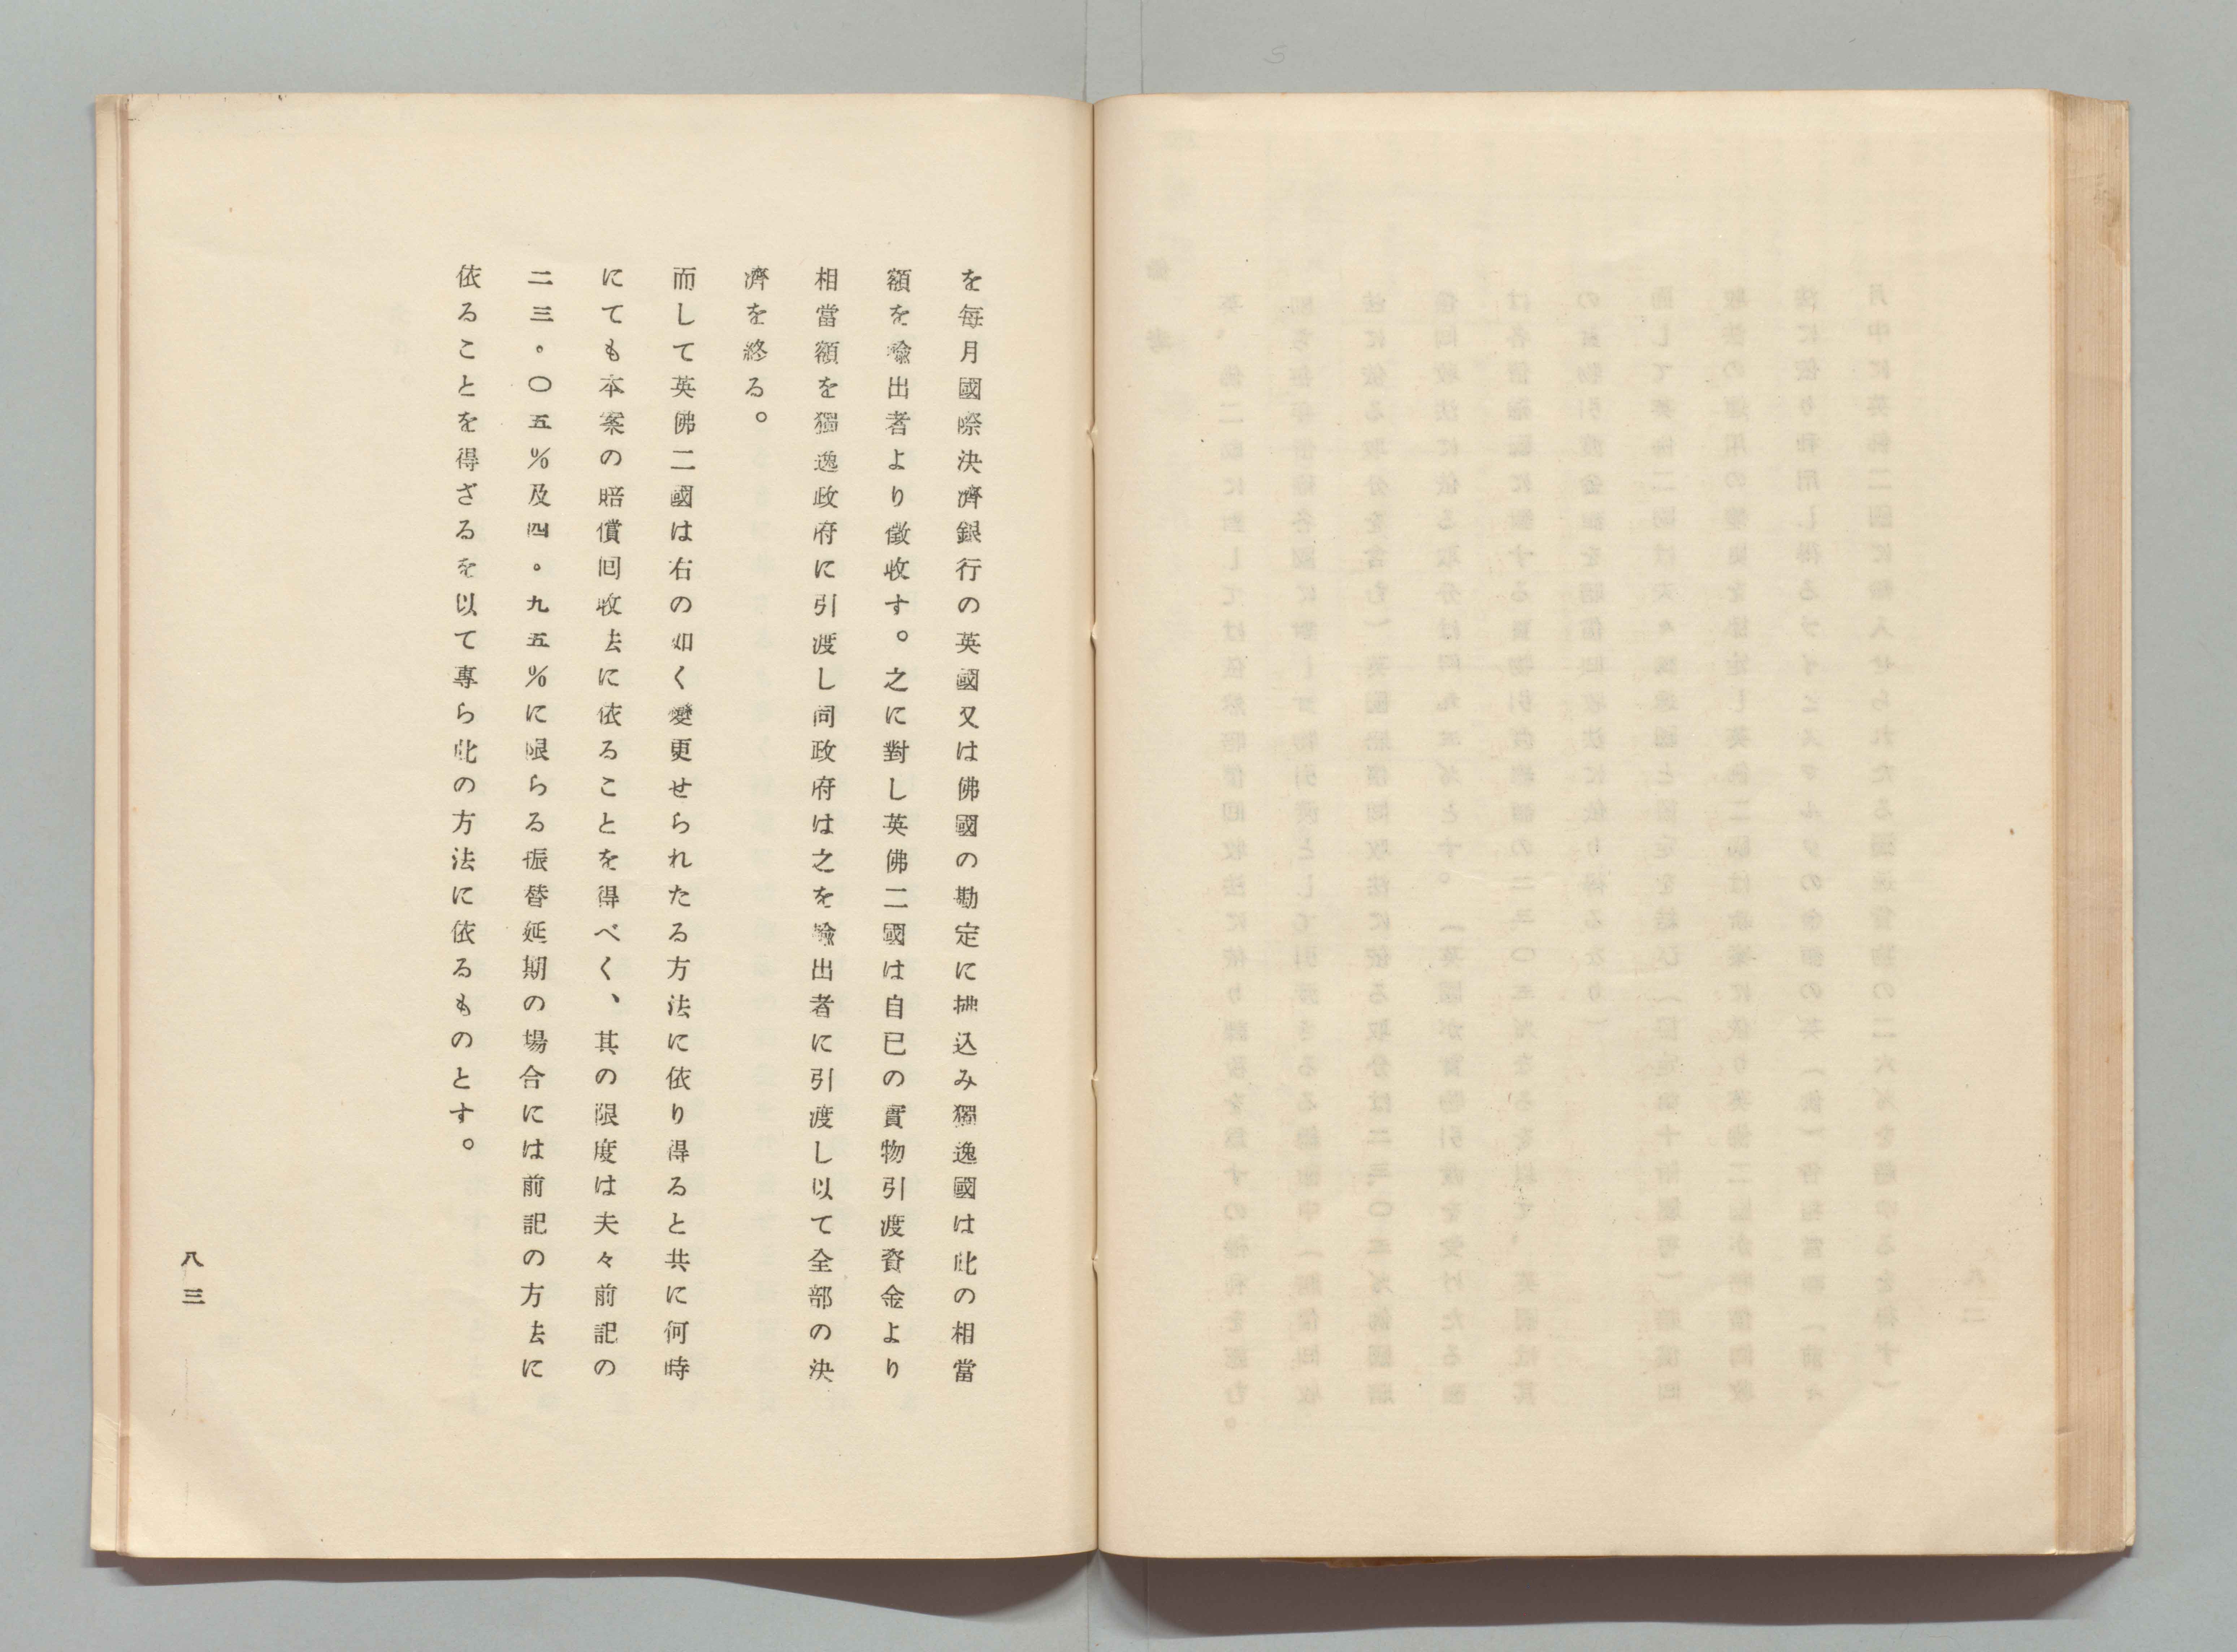 を毎月國際決濟銀行の英國又は佛國の勘定に拂込み獨逸國は此の相當
額を輸出者より徵收す。之に對し英佛二國は自己の實物引渡資金より
相當額を獨逸政府に引渡し同政府は之を輸出者に引渡し以て全部の決
濟を終る。
而して英佛二國は右の如く變更せられたる方法に依り得ると共に何時
にても本案の賠償回收法に依ることを得べく、其の限度は夫々前記の
二三。〇五％及四。九五％に限らる振替延期の場合には前記の方法に
依ることを得ざるを以て專ら此の方法に依るものとす。
八三